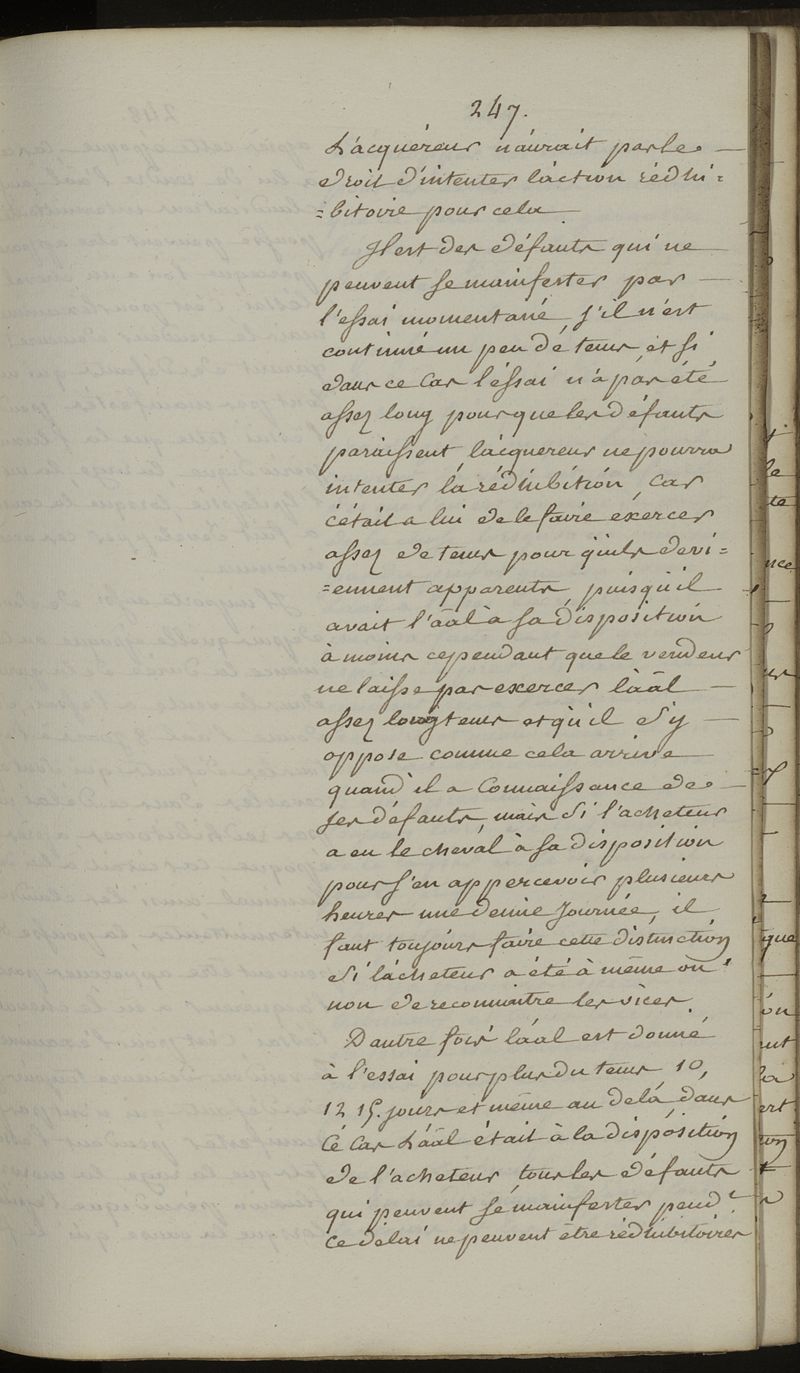 247.
L'acquéreur n'aurait pas le
droit d'intenter l'action rédhi=
=bitoire pour cela
Il est des défauts qui ne
peuvent se manifester par
l'essai momentané s'il n'est
continué un peu de tems, et si
dans ce cas l'éssai n'a pas été
assez long pour que les défauts
paraissent, l'acquereur ne pourra
intenter la rédhibition, car
c'était a lui de le faire exercer
assez de tems pour qu'ils devi=
=ennent apparents, puisqu'il
avait l'aâl à sa disposition
à moins cependant que le vendeur
ne laisse pas exercer l'aâl
assez longtems et qu'il s'y
oppose comme cela arrive
quand il a connaissance de
ses défauts, mais si l'acheteur
a eu le cheval à sa disposition
pour s'en appercevoir plusieurs
heures une demie journée, il
faut toujours faire cette distinction
si l'acheteur a été à même où
non de reconnaitre les vices.
D'autre fois l'aâl est donné
à l'essai pour plus du tems 10,
12 15. jours et même au delà, dans
cé cas L'aâl était à la disposition
de l'acheteur tous les défauts
qui peuvent sé manifester pendt
ce délai ne peuvent être rédhibitoires